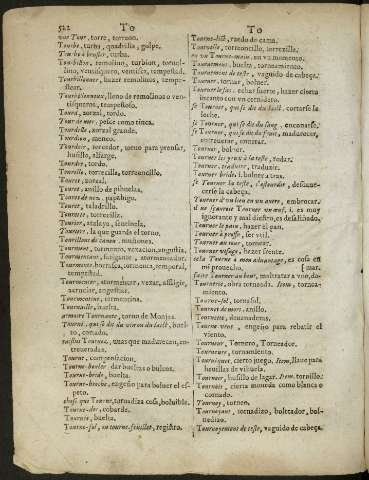 522 TO
TO
une Tour, torre, torreon.
Tourbe, turba, quadrilla, golpe.
Tourbillon, remolino, turbion, torvol-
lino, ventisquero, ventisca, tempestad.
Tourbillonner, hazer remolinos, tempe-
stear.
Tourbillonneux, lleno de remolinos o ven-
tisqueros, tempestoso.
Tourd, zorzal, tordo.
Tour de mer, pesce como tinca.
zorzal grande.
Tourdoir, torcedor, torno para prensar,
husillo, alfarge.
tordo.
Tourelle, torrecilla, torreoncillo.
Touret, zorzal.
Touret, anillo de pihuelas.
Touret de nez, papahigo.
Touret, taladrillo.
torrezilla.
atalaya, sentinela.
la que guarda el torno.
Tourillons de canon, muñones.
Tourment, tormento, vexacion, angustia.
Tourmentant, fatigante, atormentador.
Tourmente, borrasca, tormenta, temporal,
tempestad.
Tourmenter, atormentar, vexar, afligir,
acuciar, angustiar.
Tourmentine, tormentina.
Tournaille, buelta.
armoire Tournante, torno de Monjas.
buel-
to, tornado.
unas que madurecen, en-
treueradas.
compensacion.
dar bueltas o bulcos.
Tourne-bride, buelta.
Tourne-broche, engeño para boluer el es-
peto.
chose que Tourne, tornadiza cosa, boluible.
cobarde.
Tournée, buelta.
registro.
ruedo de cama.
Tournelle, torreoncillo, torrezilla.
en un Tourne-main, en un momento.
Tournement, buelta, tornamiento.
Tournement de teste, vaguido de cabeça.
Tourner, tornar, boluer.
echar suerte, hazer cierta
incanto con un cernidero.
se Tourner, qui se dit du laict, cortarse la
leche.
se Tourner, qui se dit du sang, enconarse.
se Tourner, qui se dit du fruict, madurecer,
entreuerar, enuerar.
Tourner, boluer.
Tourner les yeux à la teste, rodar.
Tourner, traduire, traduzir.
Tourner bride, boluer atras.
se Tourner la teste, s'estourdir, desuane-
cerse la cabeça.
Tourner d'un lieu en un autre, embrocar.
il ne sçauroit Tourner un œuf, i. es muy
ignorante y mal diestro, es desaliñado.
Tourner le pain, hazer el pan.
ser vtil.
Tourner au tour, tornear.
Tourner visage, hazer frente.
cela Tourne à mon aduantage, es cosa en
mi prouecho. [mar.
faire Tourner au bout, maltratar a vno, do-
Tournerie, obra torneada. Item, tornea-
miento.
Tourne-sol, tornasol.
Tournet de mors, anillo.
Tournette, deuanaderas.
engeño para rebatir el
viento.
Tourneur, Tornero, Torneador.
Tourneure, torneamiento.
Tourniquet, cierto juego. Item, llaue para
heuillas de vihuela.
husillo de lagar. Item, tornillo.
Tournois, cierta moneda como blanca o
cornado.
Tournoy, torneo.
Tournoyant, tornadizo, bolteador, bol-
nedizo.
Tournoyement de teste, vaguido de cabeça.